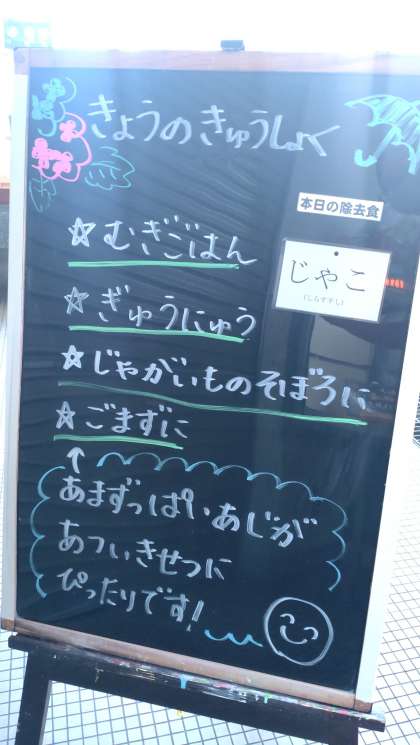 きょうのきゅうしょく
本日の除去食
☆むぎごはん
じゃこ
(しらす干し)
☆ぎゅうにゅう
☆じゃがいものそぼろに
☆ごまずに
↑
あまずっぱいあじが
あついきせつに
ぴったりです!